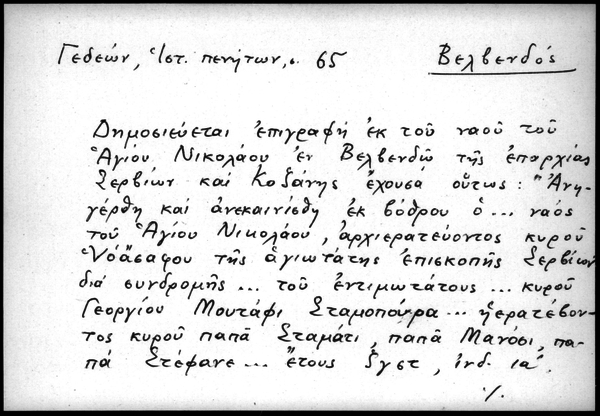 Γεδεών, Ἱστ. πενήτων, σ. 65 Βελβενδός
Δημοσιεύεται ἐπιγραφή ἐκ τοῦ ναοῦ τοῦ
Ἁγίου Νικολάου ἐν Βελβενδῶ τῆς ἐπαρχίας
Σερβίων καί Κοζάνης ἔχουσα οὕτως: "Ἀνη-
γέρθη καί ἀνεκαινίσθη ἐκ βόθρου ὁ... ναός
τοῦ Ἁγίου Νικολάου, ἀρχιερατεύοντος κυροῦ
τῆς ἁγιωτάτης ἐπισκοπῆς Σερβίων
διά συνδρομῆς... τοῦ ἐντιμωτάτους... κυροῦ
Γεωργίου Μουτάφι Σταμοπούρα... ἡερατέβον-
τος κυροῦ παπᾶ Σταμάτι, παπᾶ Μανόσι, πα-
πά Στέφανε... ἔτους ἰνδ. ια".
./.